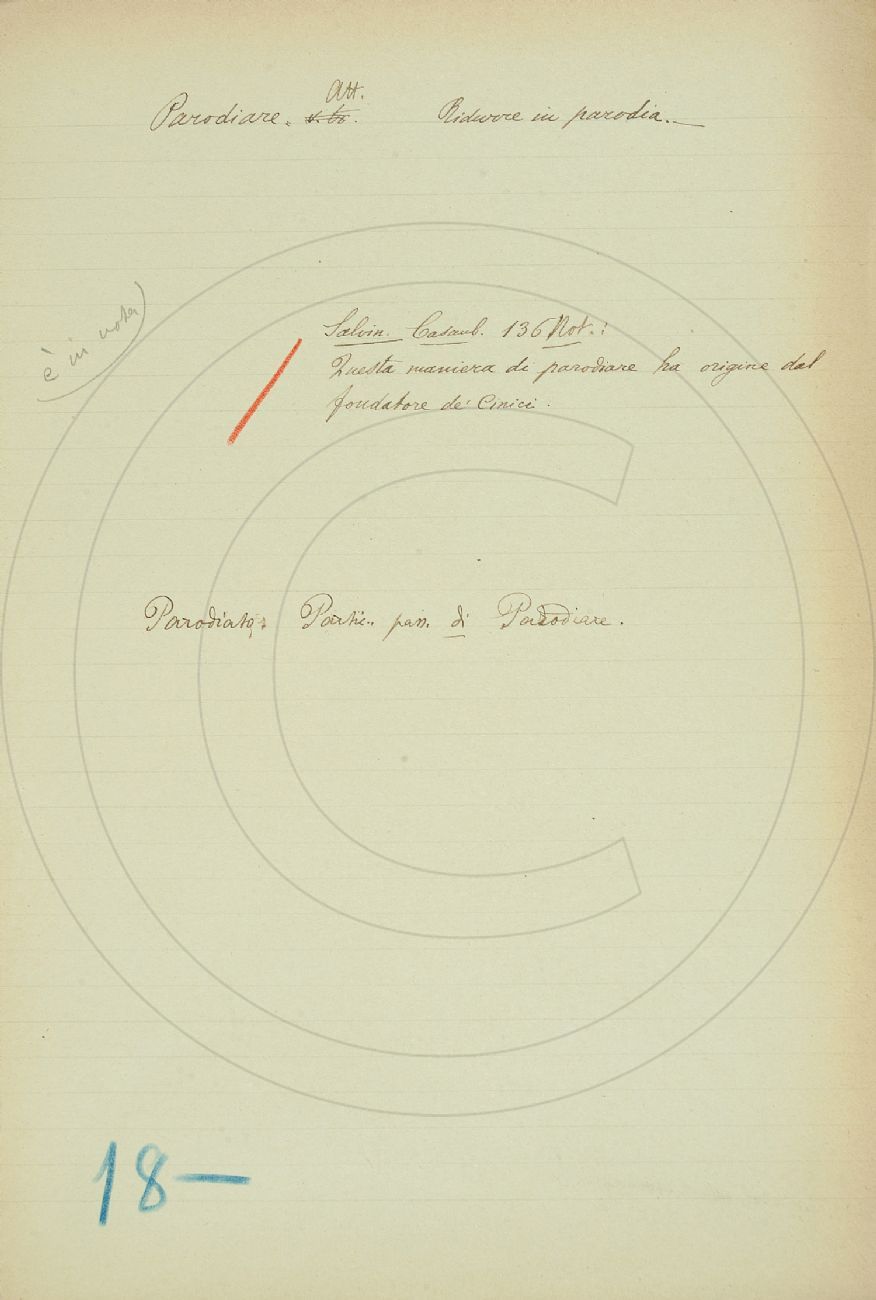 Att.
Parodiare. v. tr. Ridurre in parodia.
è in nota
Salvin. Casaub. 136 Not.:
Questa maniera di parodiare ha origine dal
fondatore de' Cinici.
Parodiato. Partic. pass. di Parodiare.
18—